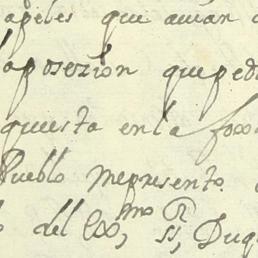 apeles que auian
aposezion quepedi
questa en la foxa
Pueblo Mepresento
del Exx, mo R ss, Duq